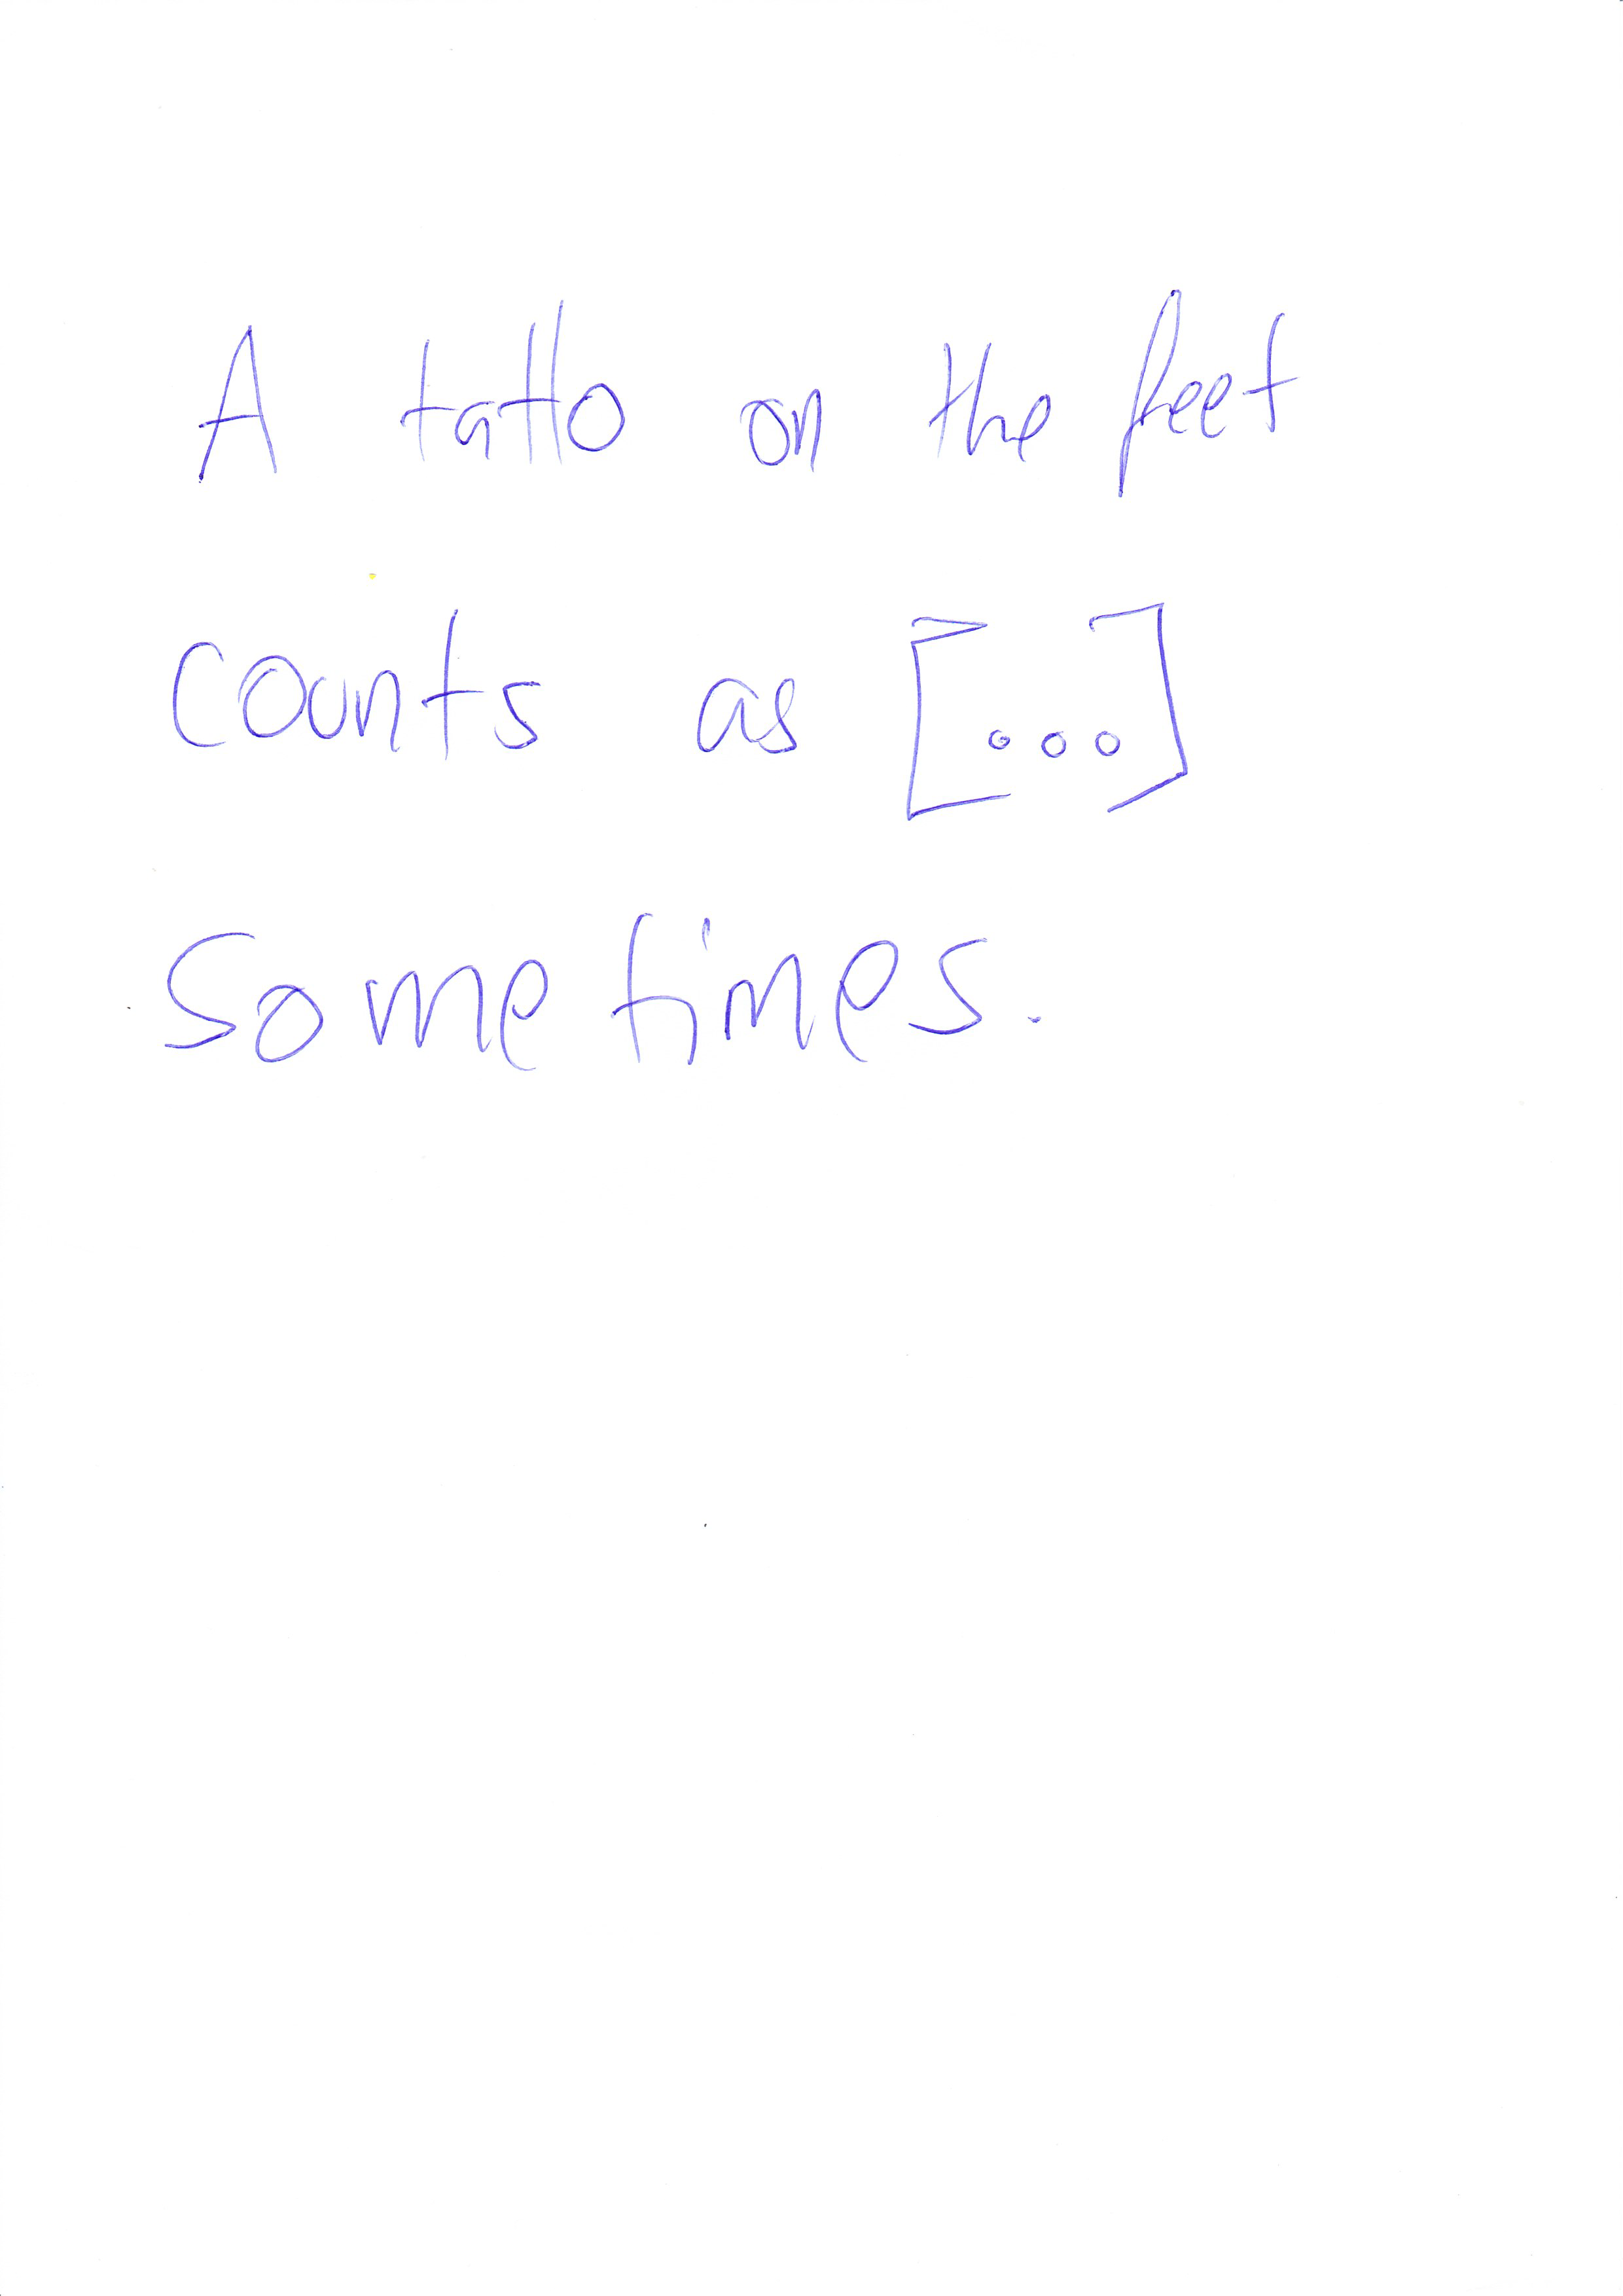 A tatto on the feet
counts as [...]
Sometimes.